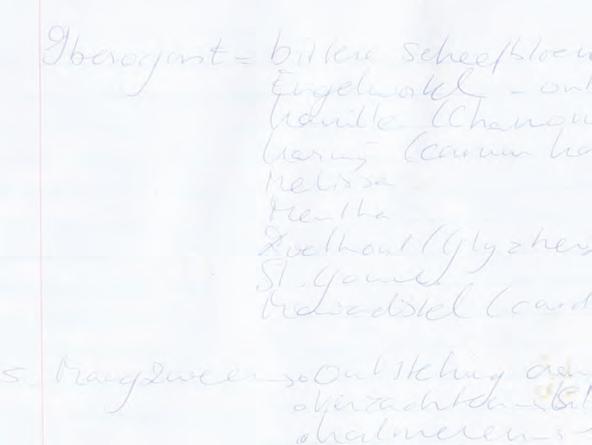 Iberogast = bittere scheefbloem
Engelwortel - ont
Kamille (Chamom
Karwij (carum ka
Melissa
Mentha
Zoethout (Glyzherr
St. Gouwe
Mariadistel (card
5. Maagzweer → ontsteking
verzachten
kalmeren